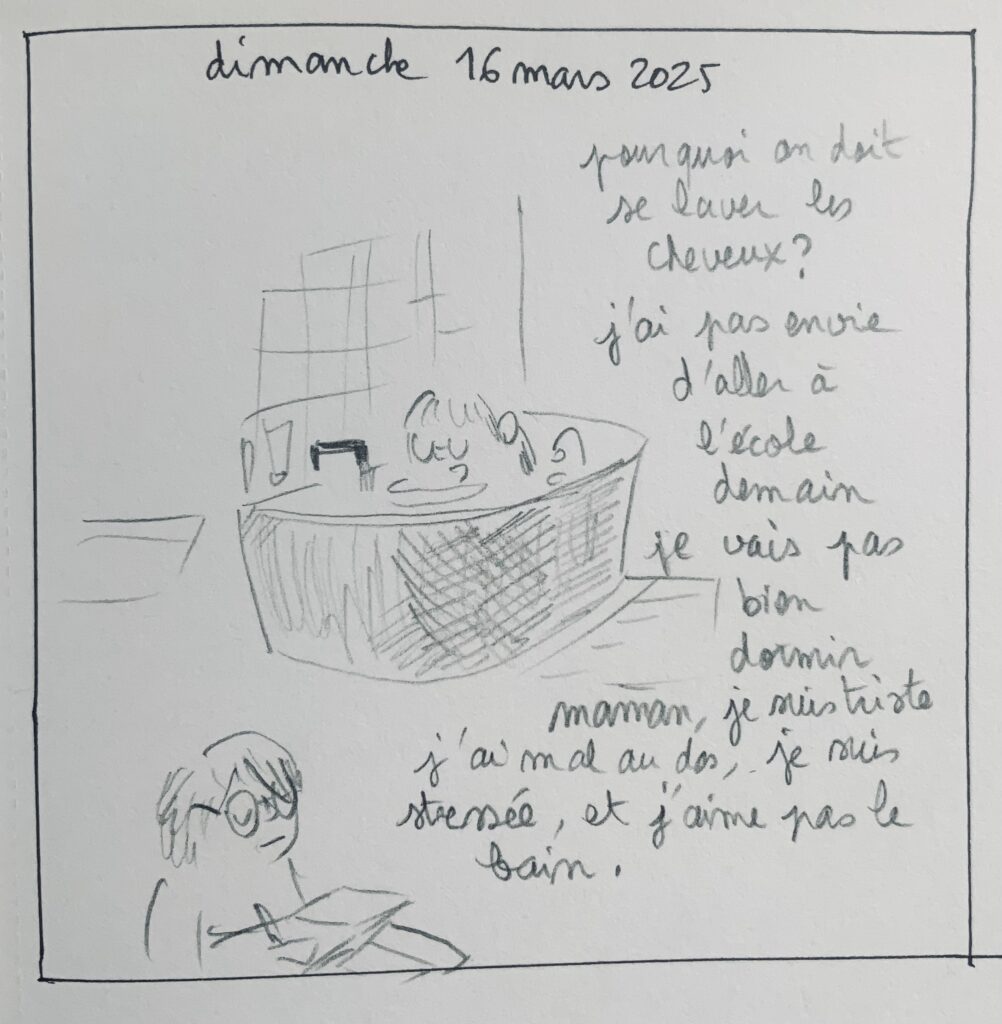 dimanche 16 mars 2025
pourquoi on doit
se laver les
cheveux?
j'ai pas envie
d'aller à
l'école
demain
je vais pas
bien
dormir
maman, je suis triste
j'ai mal au dos, je suis
stressée, et j'aime pas le
bain.